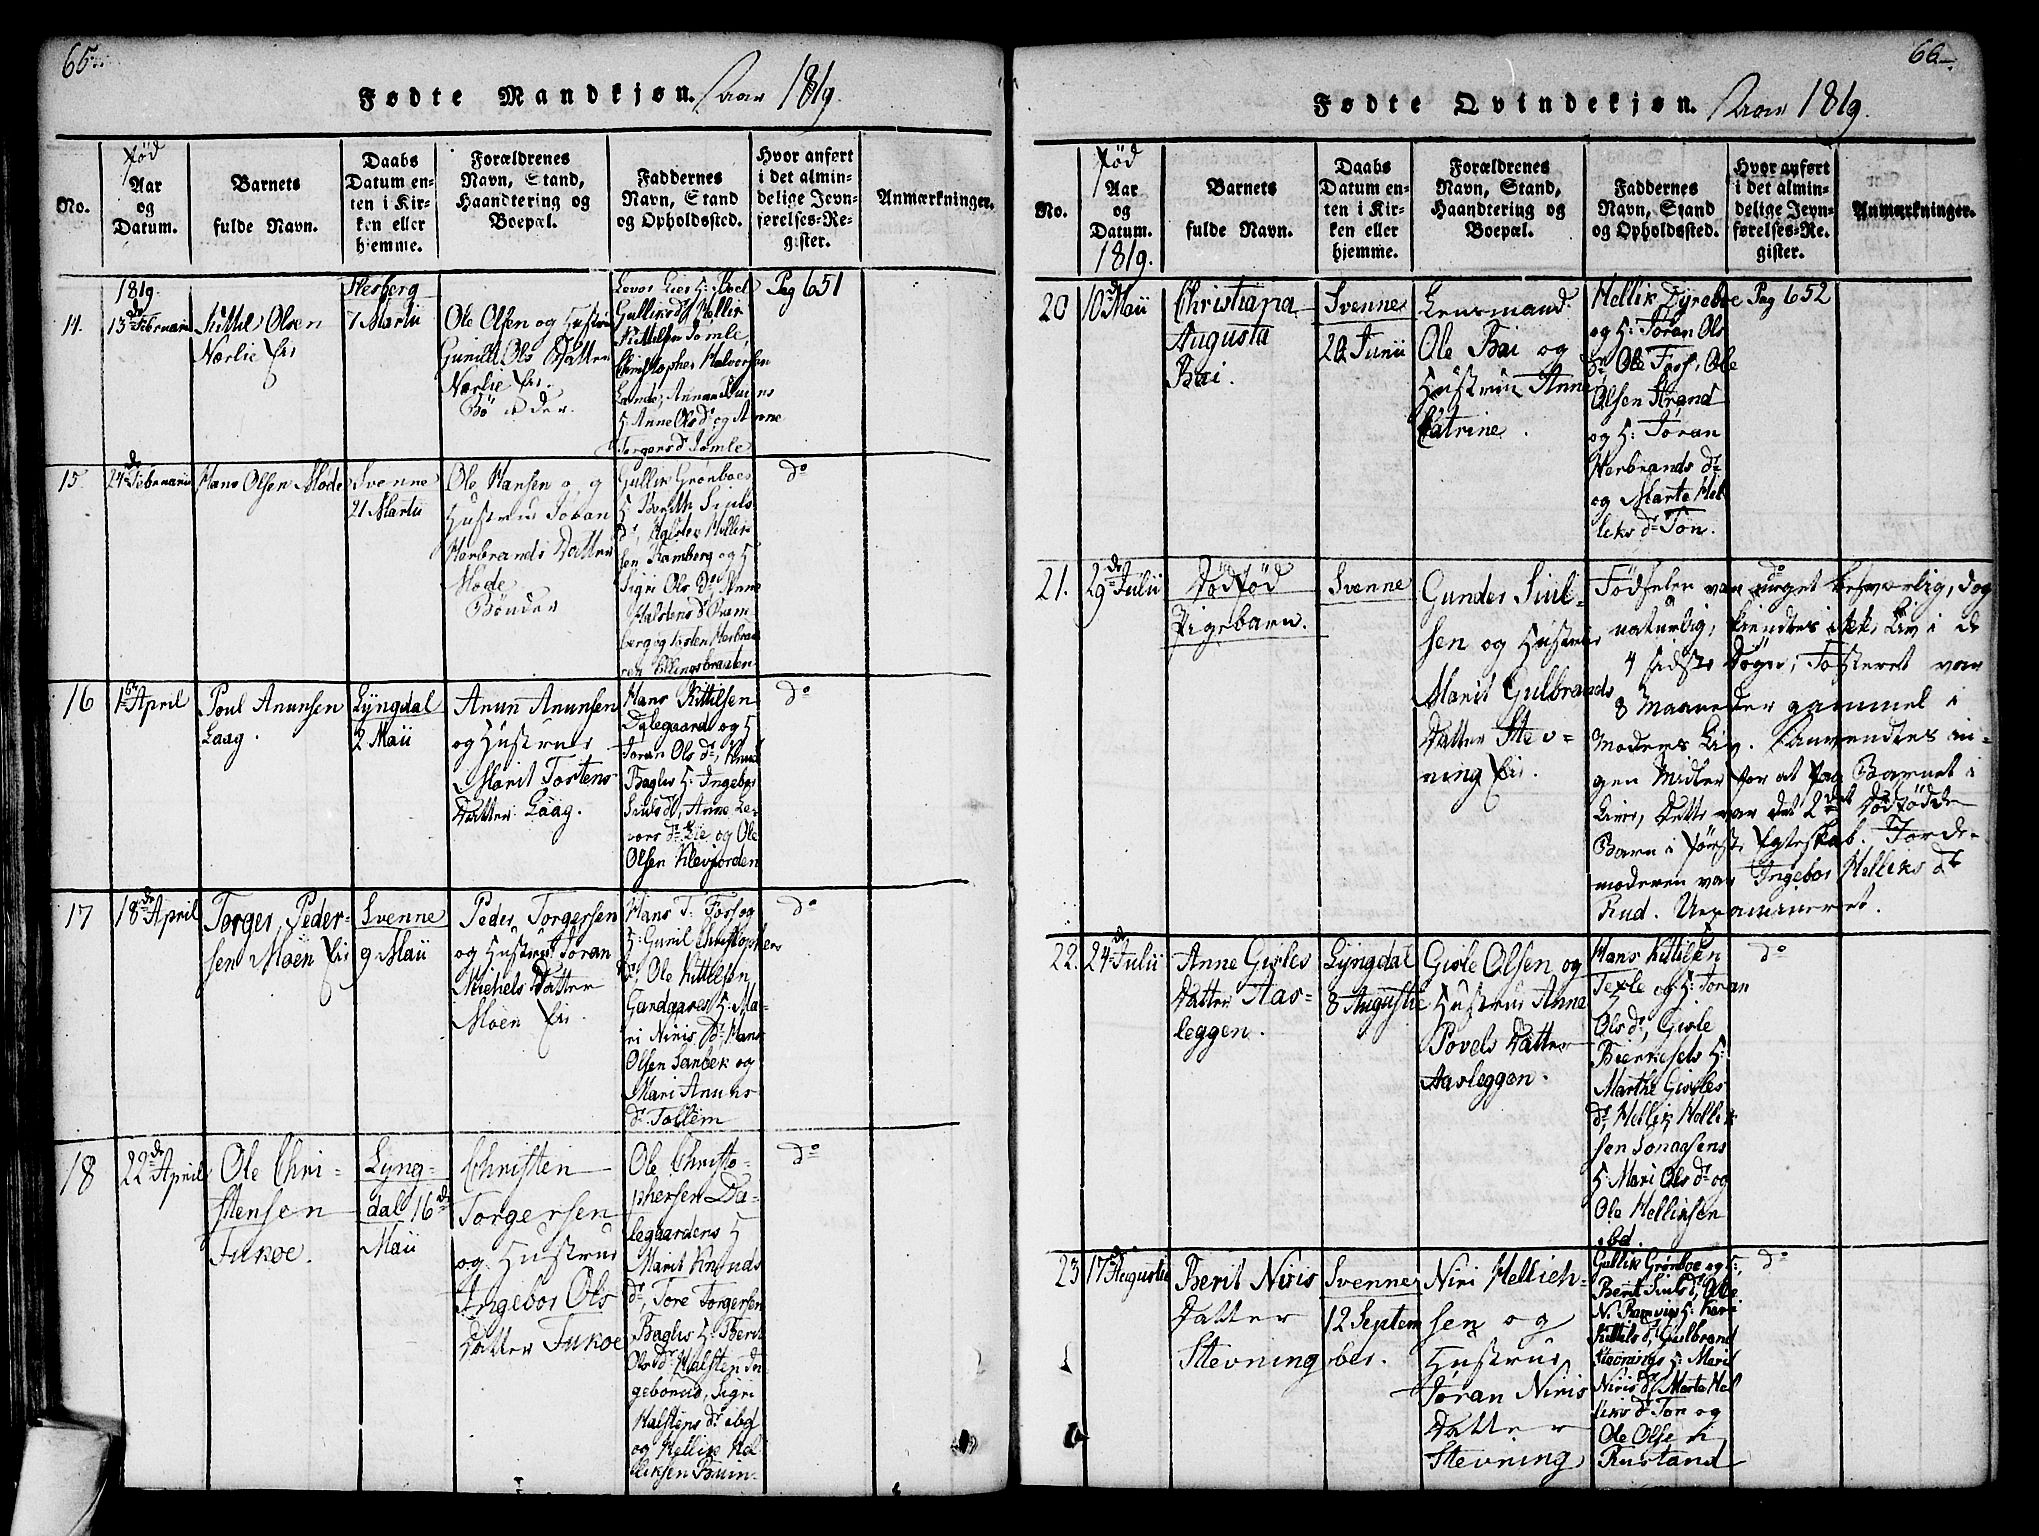 65.
Fødte Mandkjøn. Aar 1819.
No.
Fød
Aar
og
Datum.
Barnets
fulde Navn.
Daabs
Datum en-
ten i Kir-
ken eller
hjemme.
Forældrenes
Navn, Stand,
Haandtering og
Boepæl.
Faddernes
Navn, Stand
og Opholdssted.
Hvor anført
i det almin-
delige Jevn-
førelses-Re-
gister.
Anmærkninger.
14.
1819.
13de Februarii
Kittil Olsen
Nørlie
Flesberg
7 Martii
Ole Olsen og Hustrue
Gunild Ols Datter
Nørlie
Bönder.
Levor Lies H: Boel
Gulliksd, Hellik
Kittilsen Tömle,
Christopher Halvorsen
Lande,
H: Anne Olsdr og Anne
Torgersdr Tömle
Pag 651
15
24de Februarii
Hans Olsen Møde
Svenne
21 Martii
Ole Hansen og
Hustrue Joran
Herbrands Datter
Møde
Bönder
Gullik Grønboes
H: Berith Siuls
dr, Halsten Hellik-
sen Ramberg og H:
Sigri Ols dr, Anne
Halstens dr Ram
berg og Torsten Herbrand
sen Killingsbraaten
do
16
1ste April
Poul Anunsen
Laag.
Lyngdal
2 Maii
Anun Anunsen
og Hustrue
Marit Tostens
Datter Laag.
Hans Kittilsen
Dalegaard og H
Joran Ols dr, Knud
Baglis H: Ingebor
Siulsdr, Anne Le-
vors dr Lie og Ole
Olsen Klevjorden
do
17
18de April
Torger Peder-
sen Moen
Svenne
9 Maii
Peder Torgersen
og Hustrue Joran
Michels Datter
Moen
Hans T: Fors og
H: Guril Christophers
dr, Ole Kittilsen
Gandaares H: Ma-
ri Niris dr, Hans
Olsen Sandek og
Mari Anuns
dr Tollem
do
18
22de April
Ole Chri-
stensen
Jukoe.
Lyng-
dal 16de
Maii
Christen
Torgersen
og Hustrue
Ingebor Ols
Datter Jukoe
Ole Christo-
phersen Da-
legaardens H
Marit Knuds
dr, Tore Torgersen
Baglis H: Berit
Ols dr Halsten In
geborud, Sigri
Halstens dr ibd
og Hellik Hel
liksen Bruin-
do
66
Fødte Qvindekjøn. Aar 1819.
No.
Fød
Aar
og
Datum.
1819.
Barnets
fulde Navn.
Daabs
Datum en-
ten i Kir-
ken eller
hjemme.
Forældrenes
Navn, Stand,
Haandtering og
Boepæl.
Faddernes
Navn, Stand
og Opholdssted.
Hvor anført
i det almin-
delige Jevn-
førelses-Re-
gister.
Anmærkninger.
20
10de Maii
Christiana
Augusta
Bai.
Svenne
20 Junii
Lensmand
Ole Bai og
Hustrue Anne
Catrine.
Hellik Dyreboe
og H: Joran Ols
dr Ole Fors, Ole
Olsen Strand
og H: Joran
Herbrands dr
og Marte Hel
leks dr Ton.
Pag 652
21.
29de Julii
Dödfød
Pigebarn.
Svenne
Gunder Siul-
sen og Hustrue
Marit Gulbrands
Datter Stev-
ning
do
Födselen var noget besværlig, dog
naturlig; kiendtes ikke Liv i de
4 sidste Döger; Fosteret var
8 Maaneder gammel i
Moders Liv. Anvendtes in-
gen Midler for at faa Barnet i
Live, Dette var det 2det Dödfödde
Barn i første Egteskab. Jorde-
moderen var Ingebor Helleks dr
Rud. Uexamineret.
22.
24de Julii
Anne Gisles
Datter Aas-
leggen.
Lyngdal
8 Augustii
Gisle Olsen og
Hustrue Anne
Povels Datter
Aasleggen.
Hans Kittilsen
Texle og H: Joran
Ols dr, Gisle
Bierkesets H:
Marthe Gisles
dr, Hellik Hellik
sen Sonaasens
H: Mari Ols dr og
Ole Helliksen
ibd.
do
23
17de Augustii
Berit Niris
Datter
Stevning
Svenne
12 Septem
ber.
Niri Hellich-
sen og
Hustrue
Joran Niris
Datter
Stevning
Gullik Grønboe og H:
Berit Siulsdr, Ole
N. Ramvig H: Kari
Kittils dr, Gulbrand
Stevnings H: Marit
Niris dr, Marte Hel
leks dr Ton og
Ole Olsen
Rustand
do